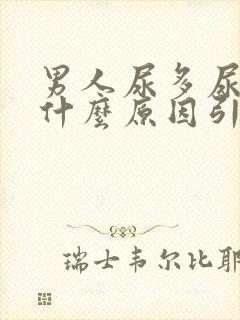 男人尿多尿
什麼原因引
瑞士韦尔比耶